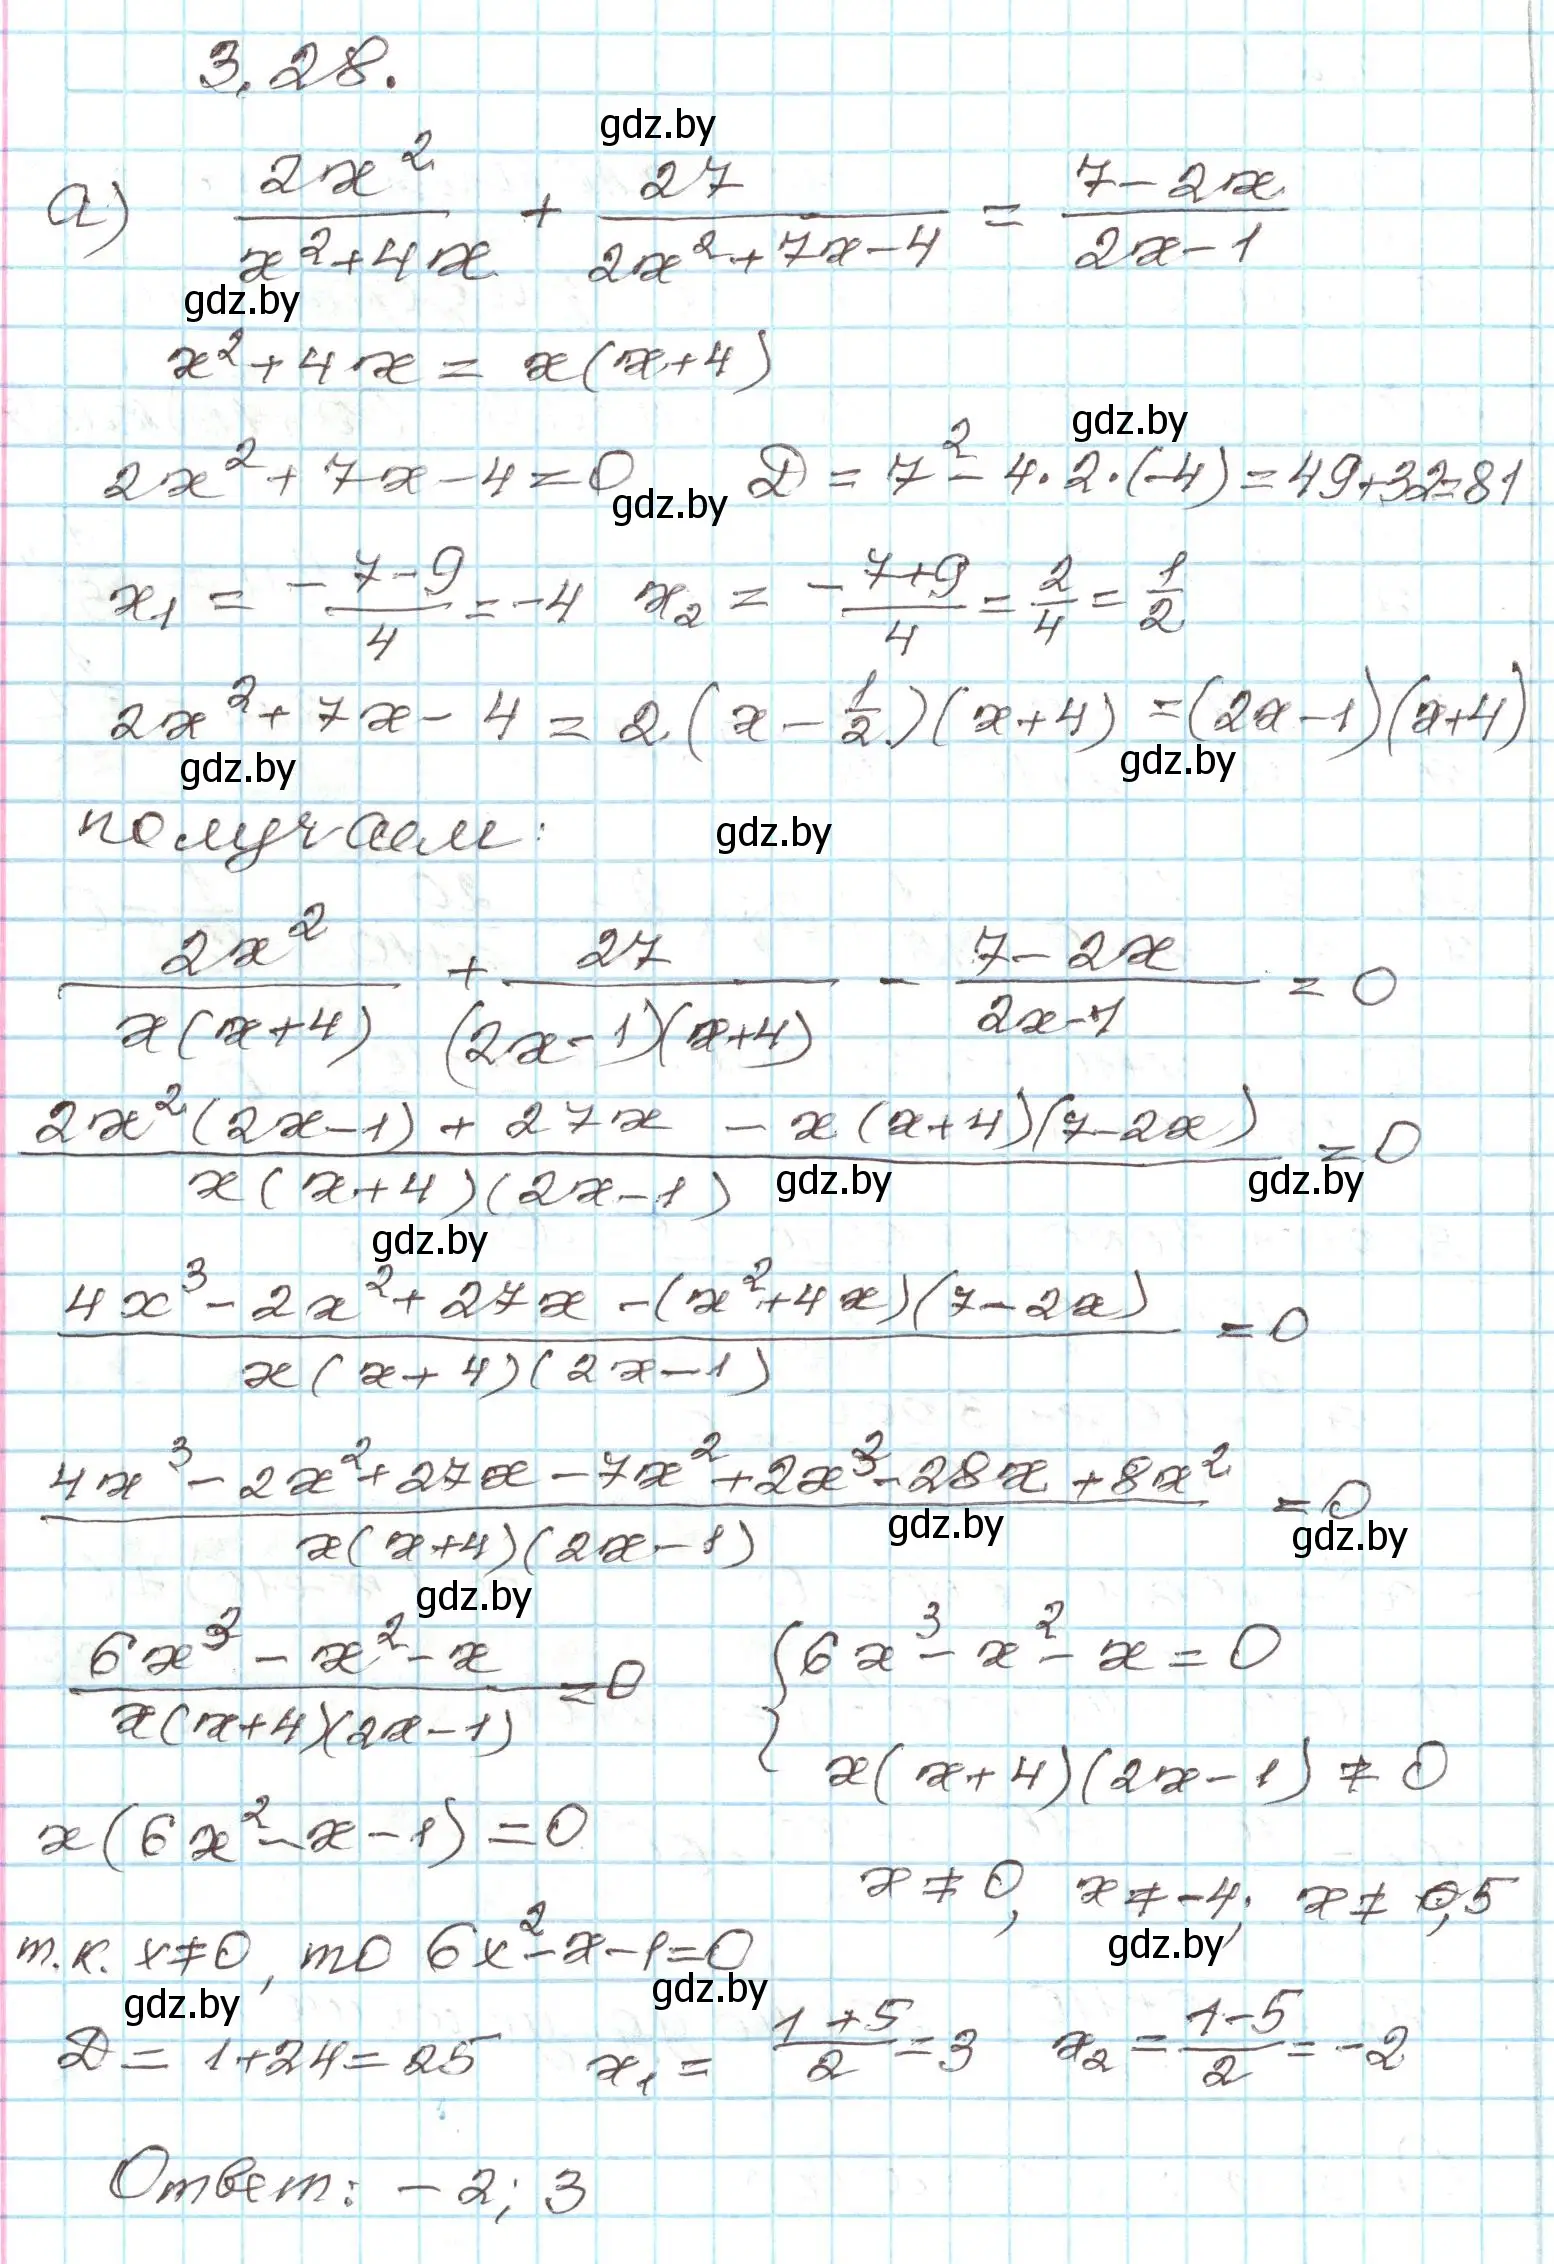 3.28.
gdz.by
а) 2x²/(x²+4x) + 27/(2x²+7x-4) = (7-2x)/(2x-1)
gdz.by
x²+4x = x(x+4)
gdz.by
2x²+7x-4=0 D = 7²-4·2·(-4)=49+32=81
gdz.by
x₁ = -(7-9)/4 = -4 x₂ = -(7+9)/4 = 2/4 = 1/2
2x²+7x-4 = 2(x-1/2)(x+4) =(2x-1)(x+4)
gdz.by gdz.by
получаем: gdz.by
2x²/(x(x+4)) + 27/((2x-1)(x+4)) - (7-2x)/(2x-1) = 0
(2x²(2x-1)+27x - x(x+4)(7-2x))/(x(x+4)(2x-1)) = 0
gdz.by gdz.by
gdz.by
(4x³-2x²+27x-(x²+4x)(7-2x))/(x(x+4)(2x-1)) = 0
(4x³-2x²+27x-7x²+2x³-28x+8x²)/(x(x+4)(2x-1)) = 0
gdz.by gdz.by
gdz.by
(6x³-x²-x)/(x(x+4)(2x-1)) = 0 { 6x³-x²-x=0
x(x+4)(2x-1)≠0
x(6x²-x-1)=0
x≠0, x≠-4; x≠0,5
т.к. x≠0, то 6x²-x-1=0 gdz.by
gdz.by gdz.by
D = 1+24=25 x₁ = (1+5)/2 = 3 x₂ = (1-5)/2 = -2
Ответ: -2; 3